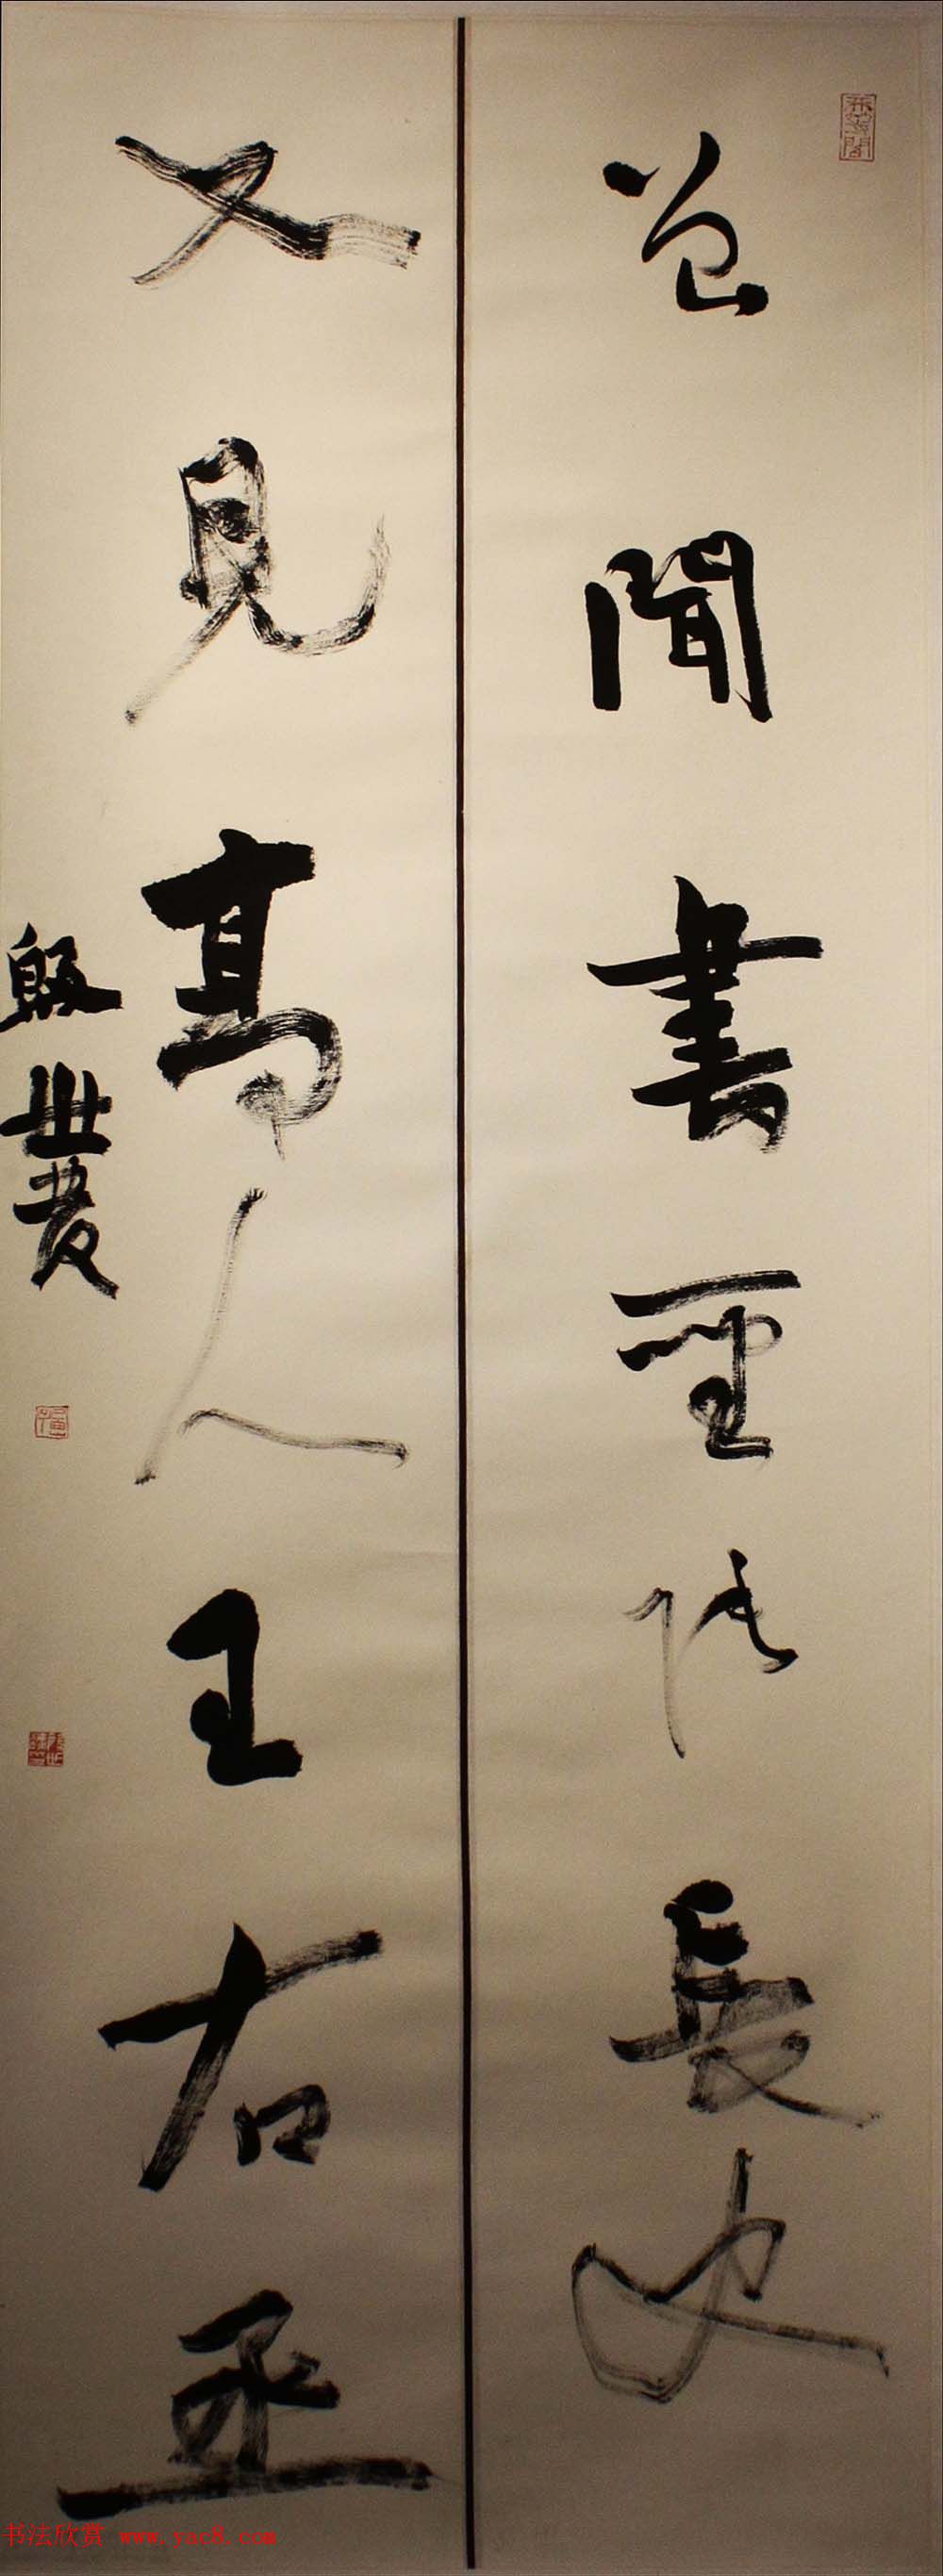 曾聞書聖張長史
又見高人王右丞
殷世農
书法欣赏 www.yac8.com